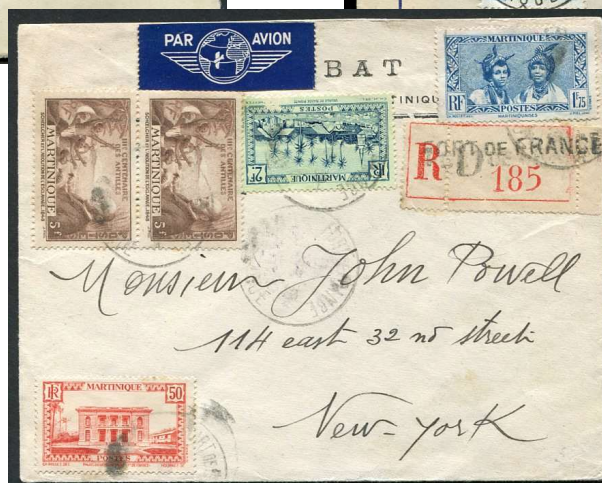 PAR AVION
BAT
MARTINIQUE
RF POSTES 1F75
MARTINIQUAISES
TRICENTENAIRE DES ANTILLES
MARTINIQUE 5F
TRICENTENAIRE DES ANTILLES
MARTINIQUE 5F
POSTES
MARTINIQUE
RF 2F
R FORT DE FRANCE
185
Monsieur John Powell
114 east 32 nd street
New-York
RF MARTINIQUE 50
POSTES